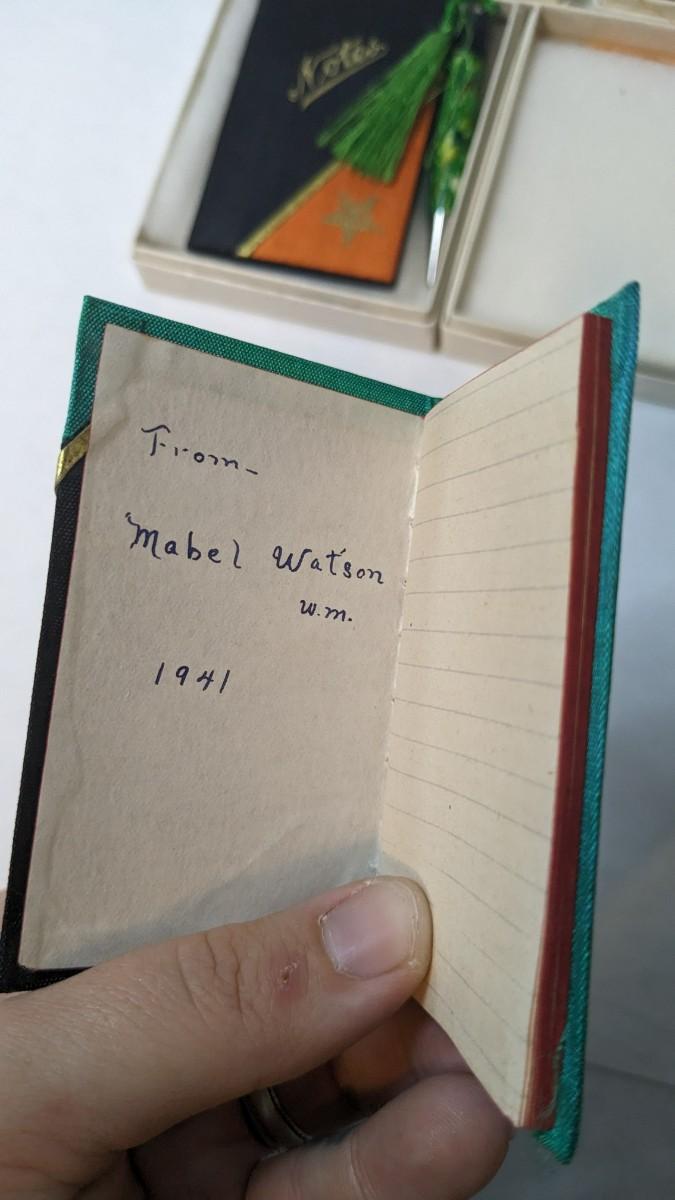 Notes
From-
Mabel Watson
W.M.
1941